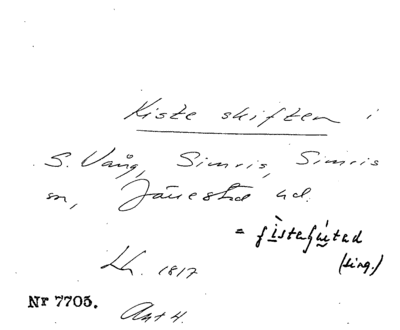 Kiste skiften i
S. Vång, Simris, Simris
sn, Järrestad hd.
= fistaſu̯tad
(sing.)
Lh. 1817
Nr 7705.
Akt 4.